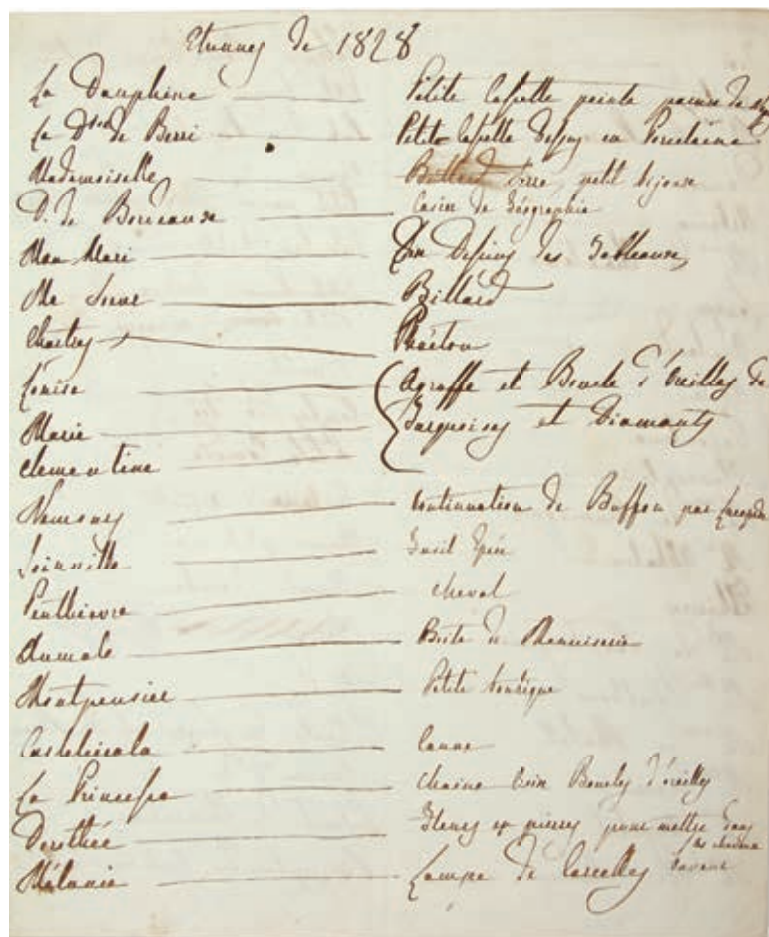 Etrennes de 1828
La Dauphine Petite Cassette peinte
La Dsse de Berri Petite Cassette dessus en Porcelaine
Mademoiselle petit bijoux
D. de Bordeaux Casier de Géographie
Mon Mari Un Dessin des Tableaux
Ma Soeur Billard
Chartres Phaéton
Louise Agraffe et Boucle d'oreilles de
Marie Turquoises et Diamants
Clementine
Nemours Continuation de Buffon par Lacepède
Joinville Fusil Epée
Penthievre Cheval
Aumale Boite de Menuiserie
Montpensier Petite boutique
Castelcicala Canne
La Princesse Chaine Boucles d'oreilles
Dorothée Fleurs en pierres pour mettre dans
les cheveux
Mélanie Lampe de